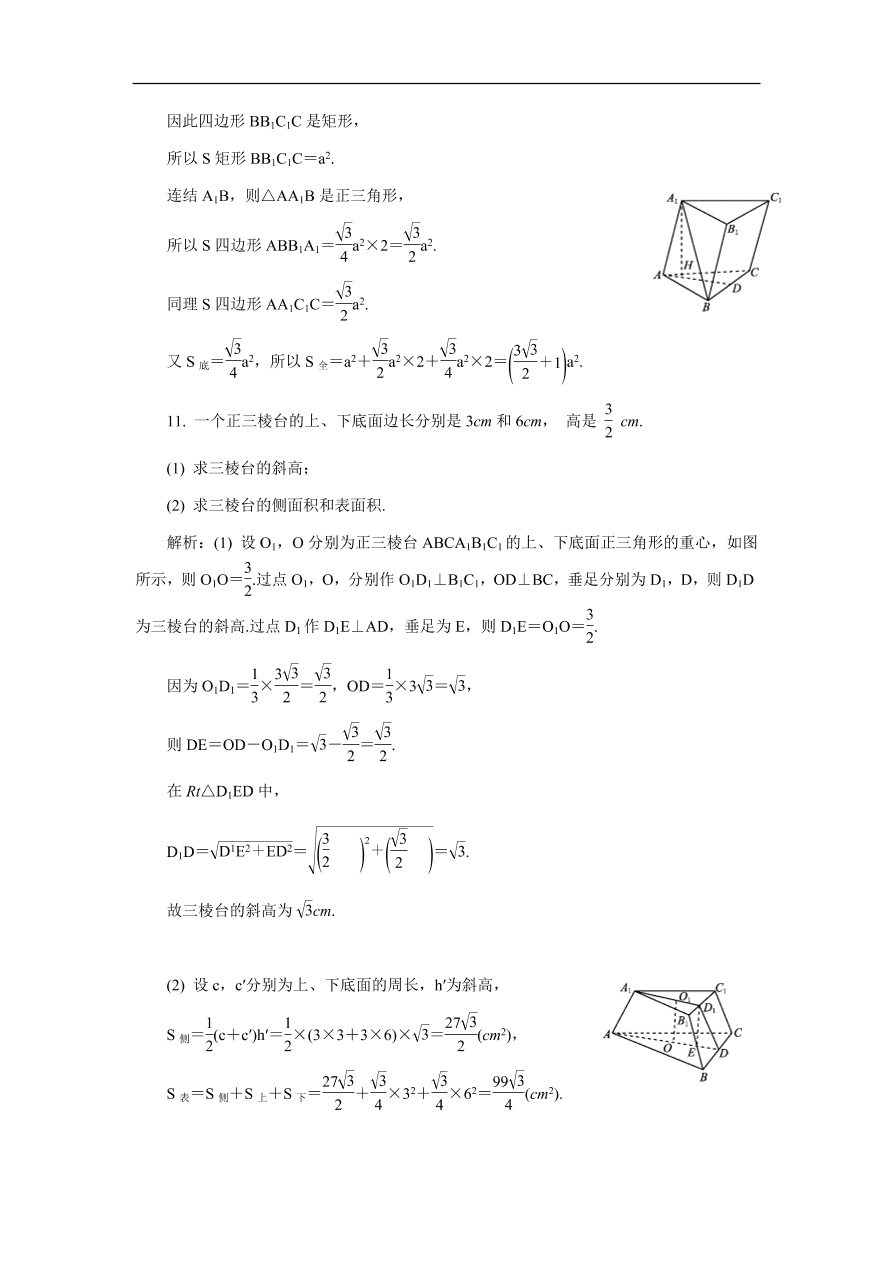 因此四边形 BB₁C₁C 是矩形，
所以 S 矩形 BB₁C₁C＝a².
连结 A₁B，则△AA₁B 是正三角形，
所以 S 四边形 ABB₁A₁＝\frac{\sqrt{3}}{4}a²×2＝\frac{\sqrt{3}}{2}a².
同理 S 四边形 AA₁C₁C＝\frac{\sqrt{3}}{2}a².
又 S 底＝\frac{\sqrt{3}}{4}a²，所以 S 全＝a²＋\frac{\sqrt{3}}{2}a²×2＋\frac{\sqrt{3}}{4}a²×2＝(\frac{3\sqrt{3}}{2}＋1)a².
A₁ C₁ B₁ A H C D B
11. 一个正三棱台的上、下底面边长分别是 3cm 和 6cm， 高是 \frac{3}{2} cm.
(1) 求三棱台的斜高；
(2) 求三棱台的侧面积和表面积.
解析：(1) 设 O₁，O 分别为正三棱台 ABCA₁B₁C₁ 的上、下底面正三角形的重心，如图
所示，则 O₁O＝\frac{3}{2}.过点 O₁，O，分别作 O₁D₁⊥B₁C₁，OD⊥BC，垂足分别为 D₁，D，则 D₁D
为三棱台的斜高.过点 D₁ 作 D₁E⊥AD，垂足为 E，则 D₁E＝O₁O＝\frac{3}{2}.
因为 O₁D₁＝\frac{1}{3}×\frac{3\sqrt{3}}{2}＝\frac{\sqrt{3}}{2}，OD＝\frac{1}{3}×3\sqrt{3}＝\sqrt{3}，
则 DE＝OD－O₁D₁＝\sqrt{3}－\frac{\sqrt{3}}{2}＝\frac{\sqrt{3}}{2}.
在 Rt△D₁ED 中，
D₁D＝\sqrt{D¹E²＋ED²}＝\sqrt{(\frac{3}{2})²＋(\frac{\sqrt{3}}{2})}＝\sqrt{3}.
故三棱台的斜高为 \sqrt{3}cm.
(2) 设 c，c′分别为上、下底面的周长，h′为斜高，
S 侧＝\frac{1}{2}(c＋c′)h′＝\frac{1}{2}×(3×3＋3×6)×\sqrt{3}＝\frac{27\sqrt{3}}{2}(cm²)，
S 表＝S 侧＋S 上＋S 下＝\frac{27\sqrt{3}}{2}＋\frac{\sqrt{3}}{4}×3²＋\frac{\sqrt{3}}{4}×6²＝\frac{99\sqrt{3}}{4}(cm²).
A₁ C₁ O₁ D₁ B₁ A C O E D B